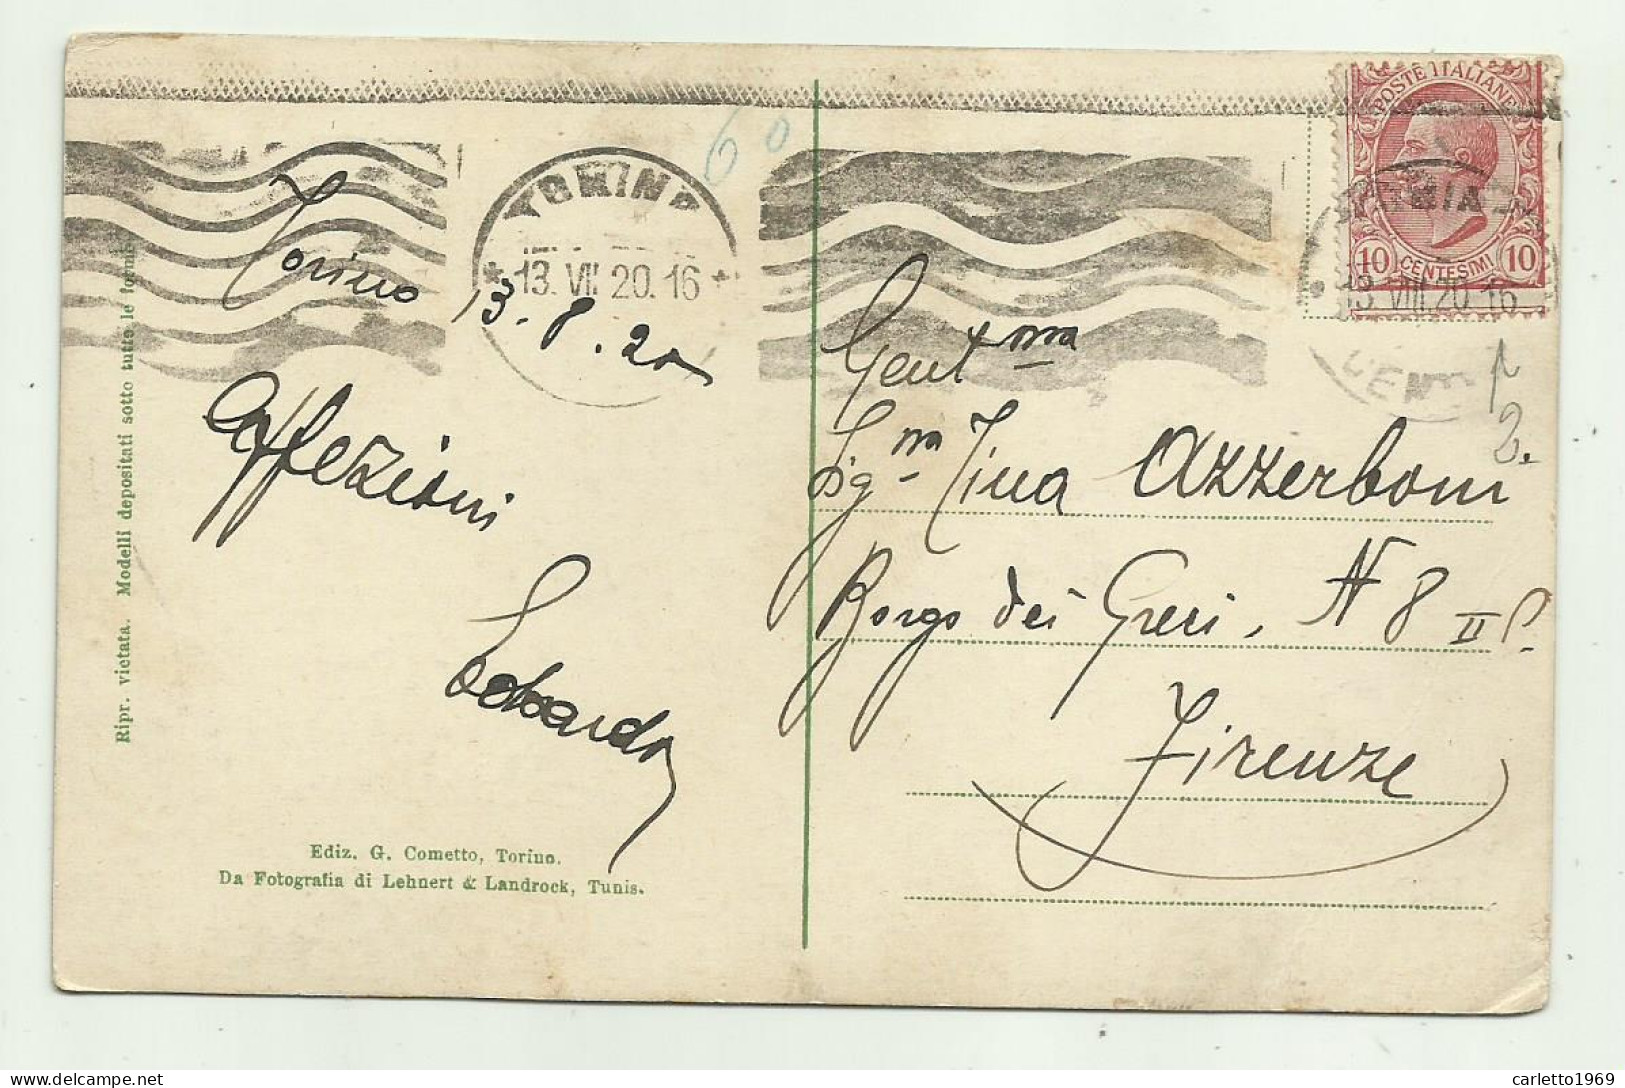 POSTE ITALIANE
10 CENTESIMI 10
TORINO
13. VII 20. 16
13 VIII. 20. 16
60
Torino
13. 8. 20
Affezioni
Gent.ma
Sig.na Tina Azzerboni
Borgo dei Greci, N 8 II P.
Firenze
2.
Ripr. vietata. Modelli depositati sotto tutte le forme
Ediz. G. Cometto, Torino.
Da Fotografia di Lehnert & Landrock, Tunis.
carletto1969